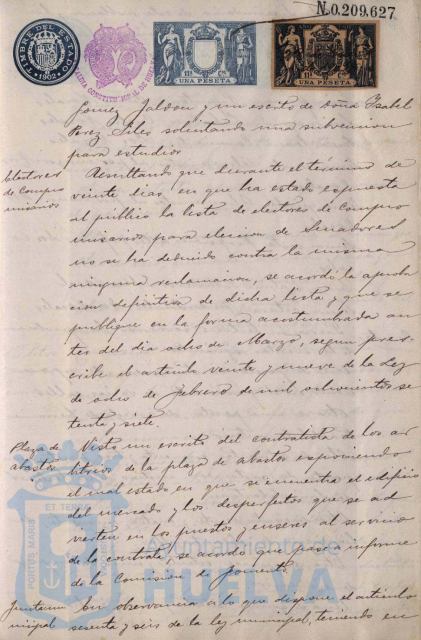 N.0.209.627
TIMBRE DEL ESTADO
1902
UNA PESETA
UNA PESETA
Gomez Jaldon y un escrito de Doña Ysabel
Perez Siles solicitando una subvencion
para estudios
Electores
de Compro
misarios
Resultando que durante el término de
veinte dias en que ha estado espuesta
al publico la lista de electores de Compro
misarios para eleccion de Senadores
no se ha deducido contra la misma
ninguna reclamacion, se acordó la aproba
cion definitiva de dicha lista y que se
publique en la forma acostumbrada an
tes del dia ocho de Marzo, segun pres
cribe el articulo veinte y nueve de la Ley
de ocho de Febrero de mil ochocientos se
tenta y siete.
Plaza de
abastos
Visto un escrito del contratista de los ar
bitrios de la plaza de abastos esponiendo
el mal estado en que se encuentra el edificio
del mercado y los desperfectos que se ad
vierten en los puestos y enseres al servicio
de la contrata, se acordó que pase á informe
de la Comision de Fomento.
Junta mu
nicipal
En observancia á lo que dispone el articulo
sesenta y seis de la ley municipal, teniendo en
PORTUS MARIS
ET TERRAE
Ayuntamiento de
HUELVA